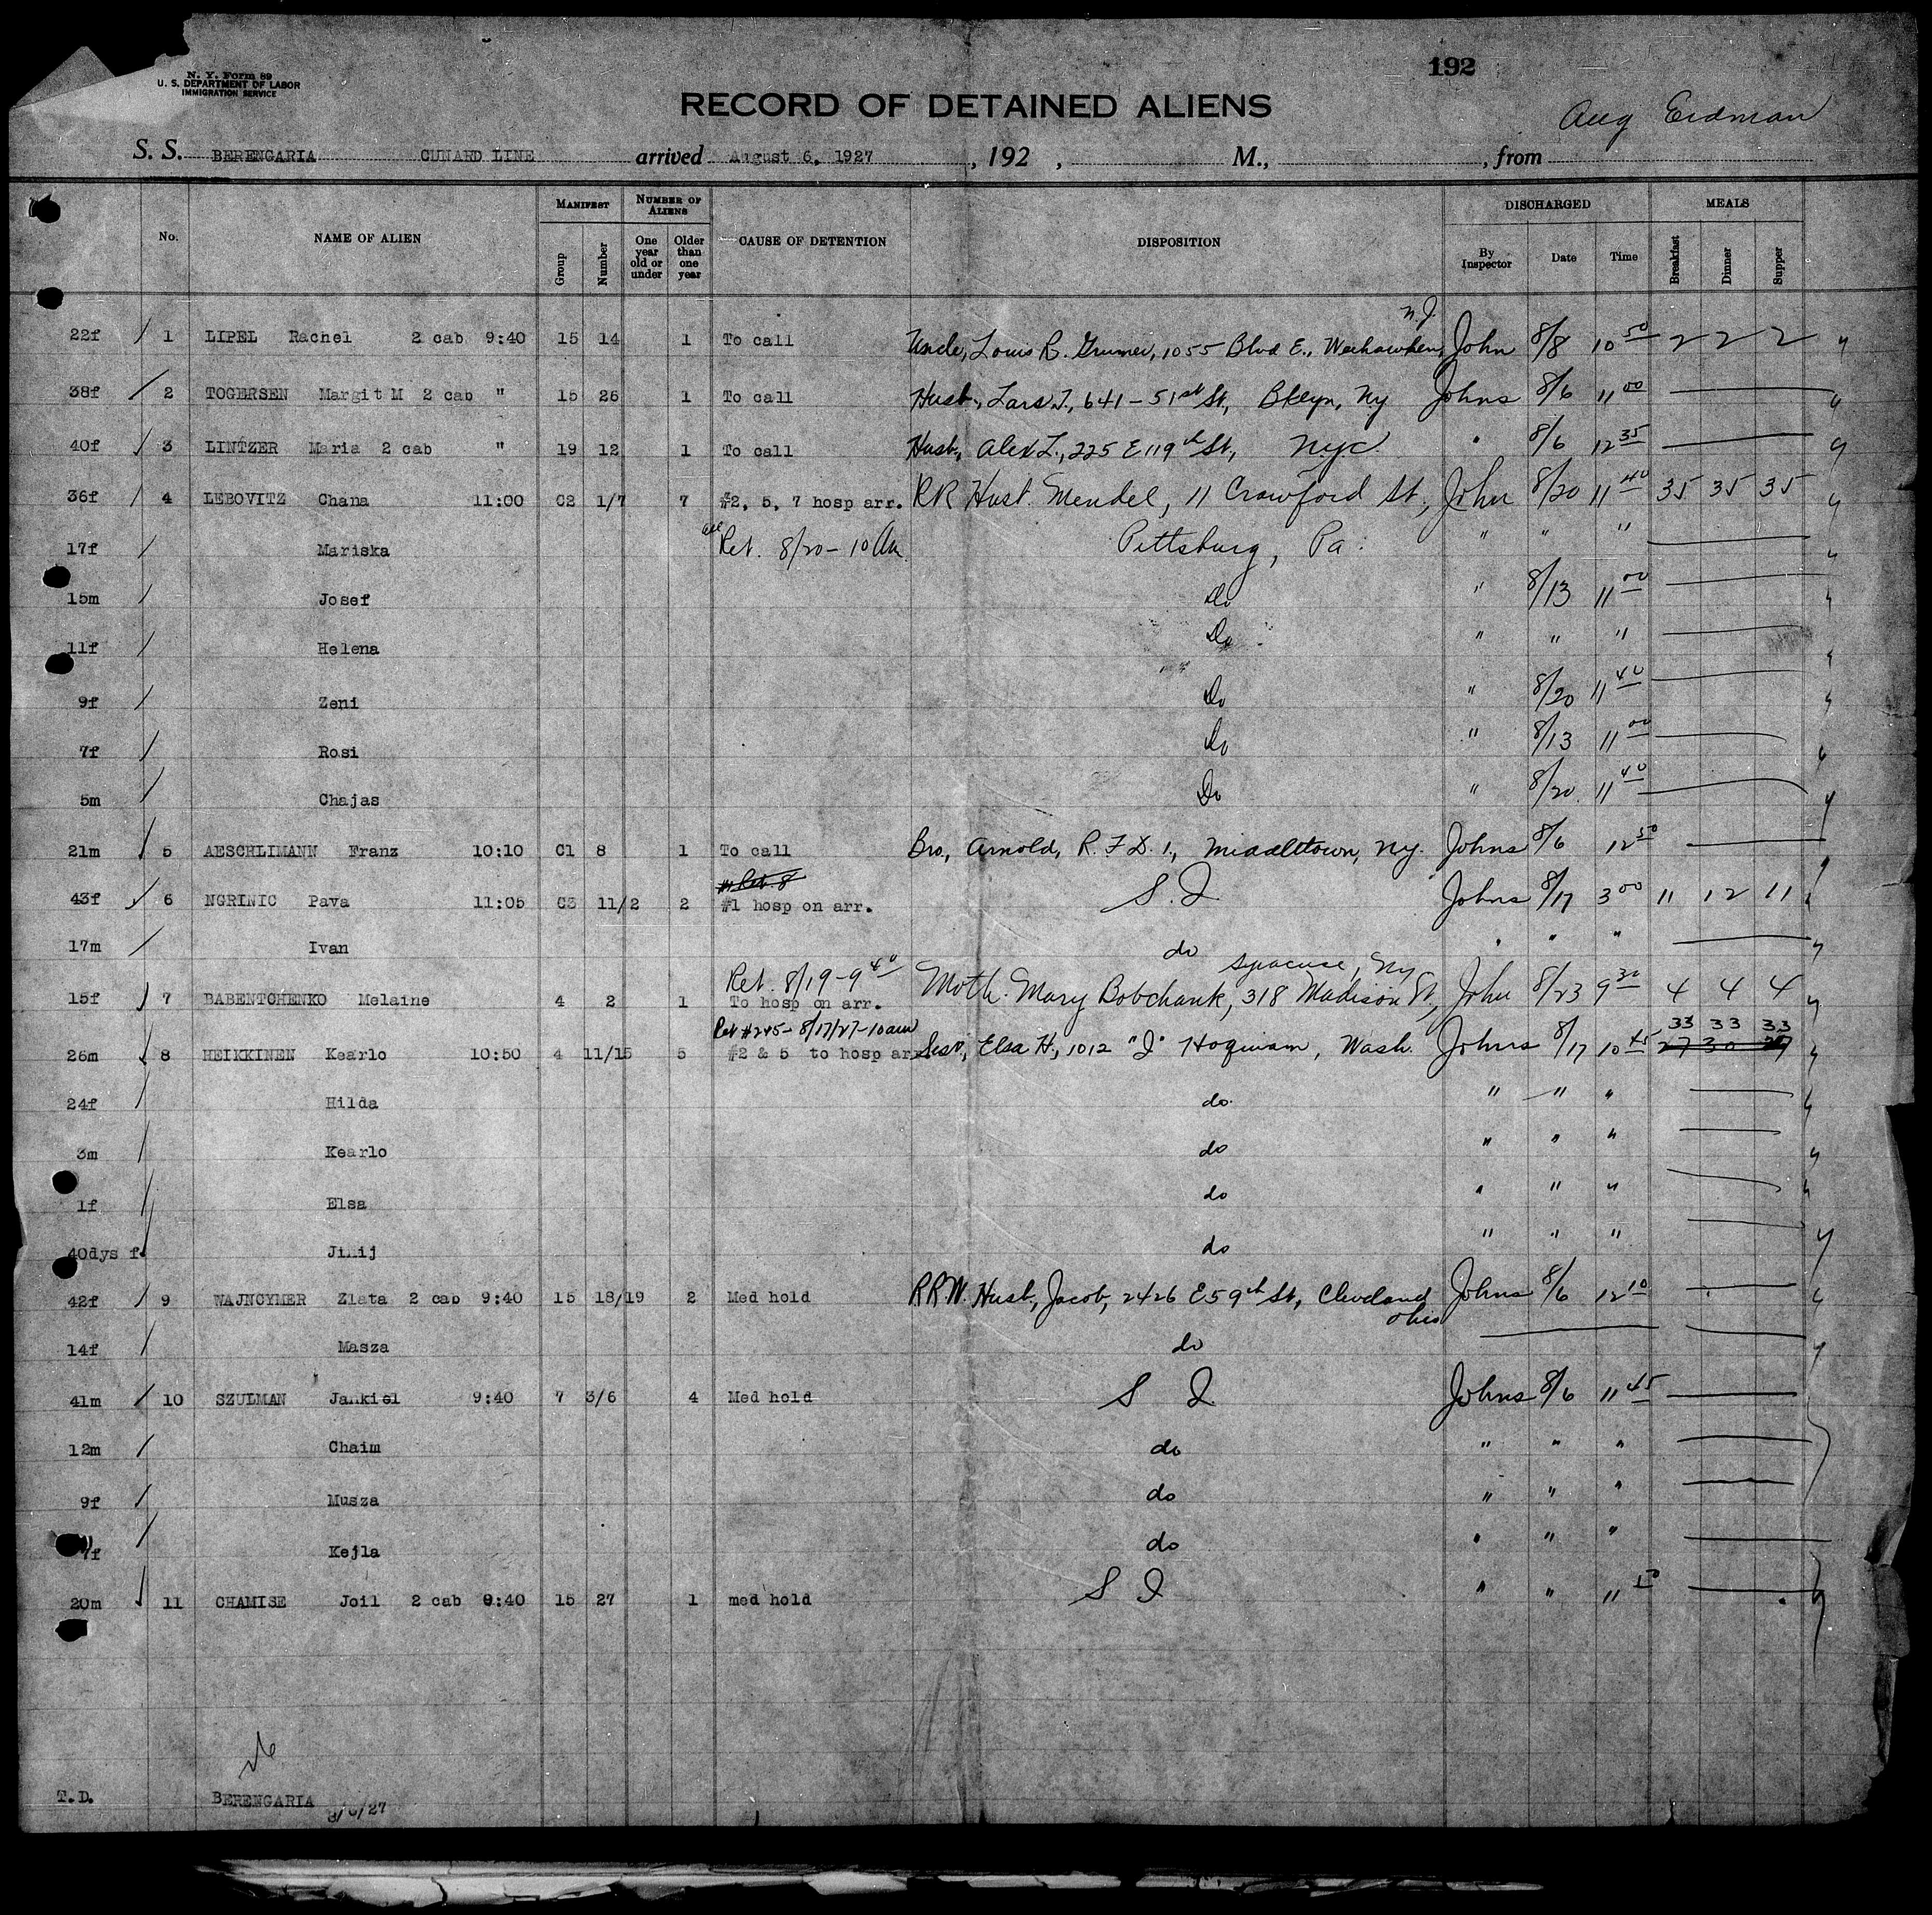 192
N. Y. Form 89
U. S. DEPARTMENT OF LABOR
IMMIGRATION SERVICE
RECORD OF DETAINED ALIENS
Aug Erdman
S. S. BERENGARIA CUNARD LINE arrived August 6, 1927, 192 , M., , from
No. NAME OF ALIEN MANIFEST Group Number NUMBER OF ALIENS One year old or under Older than one year CAUSE OF DETENTION DISPOSITION DISCHARGED By Inspector Date Time MEALS Breakfast Dinner Supper
N.J.
22f / 1 LIPEL Rachel 2 cab 9:40 15 14 1 To call Uncle, Louis R. Grumer, 1055 Blvd E., Weehawken, John 8/8 10 50 2 2 2
38f / 2 TOGERSEN Margit M 2 cab " 15 26 1 To call Husb, Lars T., 641 - 51st St, Bklyn, Ny Johns 8/6 11 00
40f / 3 LINTZER Maria 2 cab " 19 12 1 To call Husb, Alex L., 225 E 119th St, Nyc " 8/6 12 35
36f / 4 LEBOVITZ Chana 11:00 C2 1/7 7 #2, 5, 7 hosp arr. RR Husb. Mendel, 11 Crawford St, John 8/20 11 40 35 35 35
17f / Mariska all Ret. 8/20 - 10 Am Pittsburg, Pa. " " "
15m / Josef Do " 8/13 11 00
11f / Helena Do " " "
9f / Zeni Do " 8/20 11 40
7f / Rosi Do " 8/13 11 00
5m / Chajas Do " 8/20 11 40
21m / 5 AESCHLIMANN Franz 10:10 C1 8 1 To call Bro, Arnold, R. F. D. 1, Middletown, Ny. Johns 8/6 12 50
43f / 6 NGRINIC Pava 11:05 C3 11/2 2 #1 hosp on arr. S. I Johns 8/17 3 00 11 12 11
17m / Ivan do " " "
Ret. 8/19 - 9 40 Syracuse, Ny
15f / 7 BABENTCHENKO Melaine 4 2 1 To hosp on arr. Moth. Mary Bobchank, 318 Madison St, John 8/23 9 30 4 4 4
Ret #2&5 - 8/17/27 - 10am 33 33 33
26m / 8 HEIKKINEN Kearlo 10:50 4 11/15 5 #2 & 5 to hosp arr Sisr, Elsa H, 1012 "I" Hoquiam, Wash. Johns 8/17 10 45 27 30 27
24f / Hilda do " " "
3m / Kearlo do " " "
1f / Elsa do " " "
40dys f / Jilij do " " "
42f / 9 WAJNCYMER Zlata 2 cab 9:40 15 18/19 2 Med hold RRW. Husb, Jacob, 2426 E 59th St, Cleveland Johns 8/6 12 10
Ohio
14f / Masza do
41m / 10 SZULMAN Jankiel 9:40 7 3/6 4 Med hold S I Johns 8/6 11 45
12m / Chaim do " " "
9f / Musza do " " "
7f / Kejla do " " "
20m / 11 CHAMISE Joil 2 cab 9:40 15 27 1 med hold S I " " 11 50
T.D. BERENGARIA 8/6/27